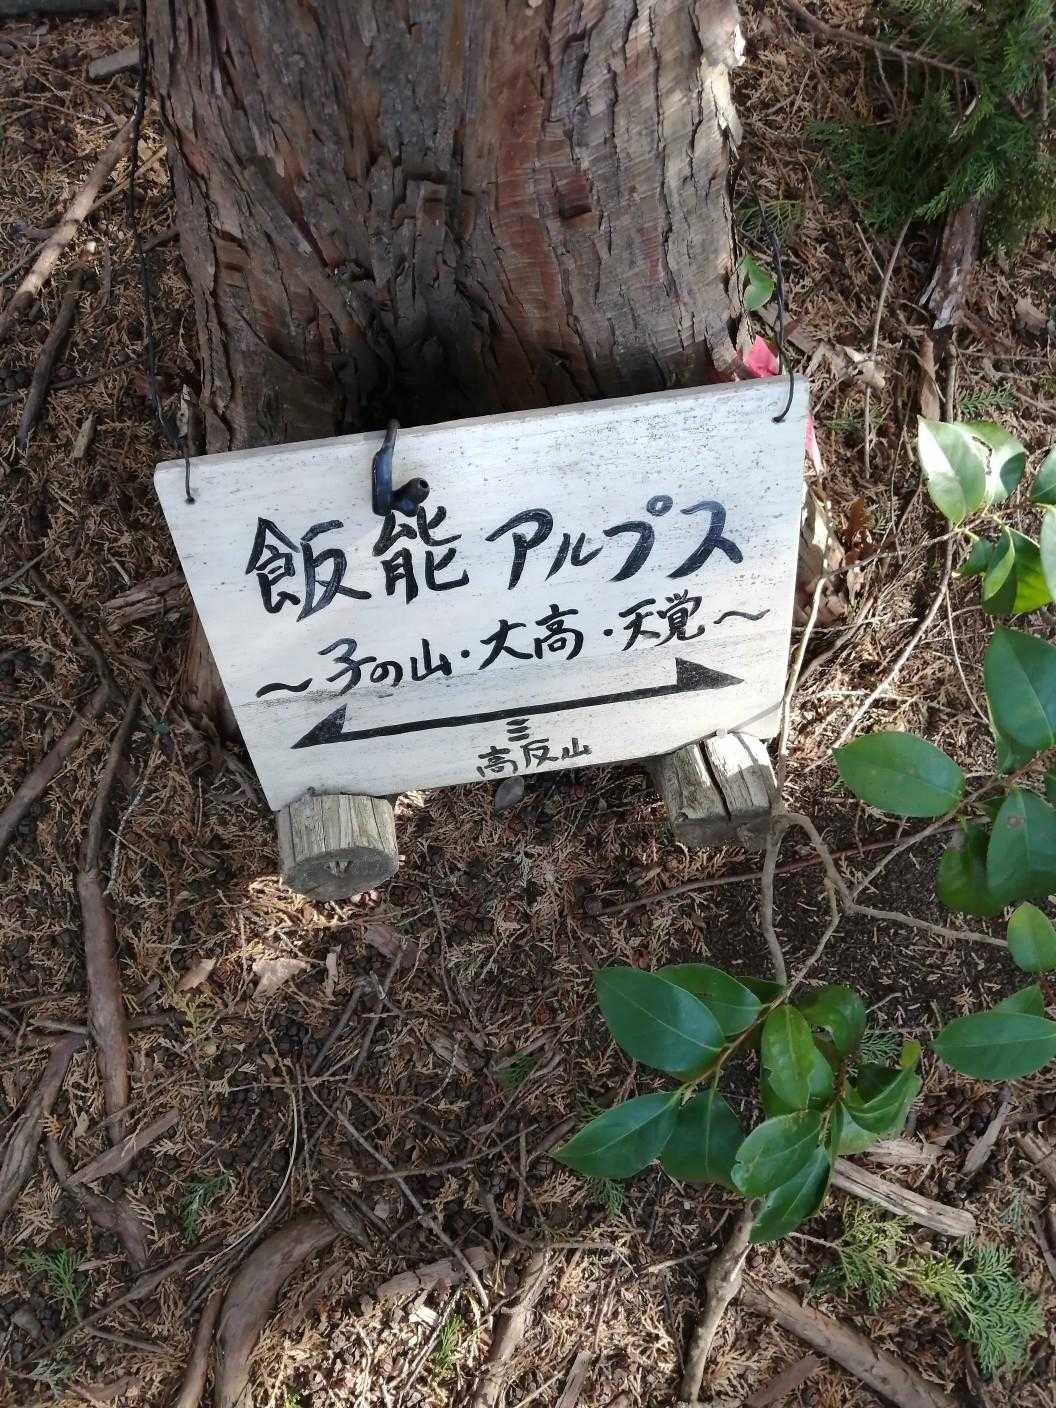 飯能アルプス
〜子の山・大高・天覚〜
三
高反山